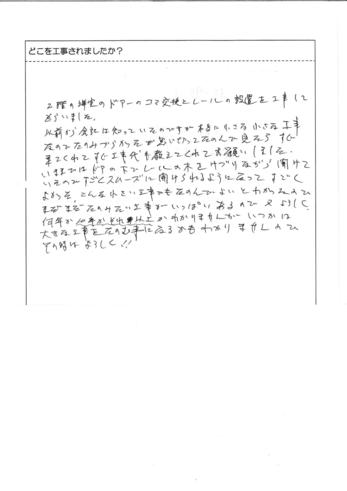 どこを工事されましたか？
2階の洋室のドアーのコマ交換とレールの設置を工事して
もらいました。
以前から会社は知っていたのですが本当に小さな小さな工事
なのでたのみづらかったが思いきってたのんで見たら すぐ
来てくれてすぐ工事代も教えてくれてお願いしました。
いままではドアの下でレールの木をけづりながら開けて
いたのですごくスムーズに開けられるようになって すごく
よかった こんな小さい工事でもたのんでよいとわかったので
まだまだたのみたい工事がいっぱいあるので よろしく
何年か かわかりませんが いつかは
大きな工事をたのむ事になるかもわかりませんので
その時は よろしく!!